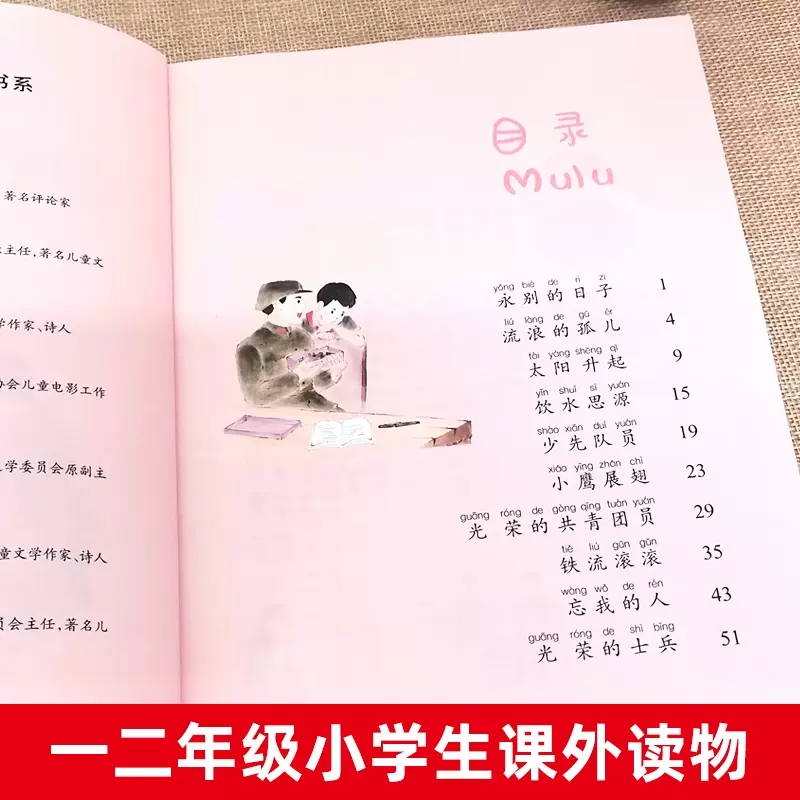 书系
著名评论家
主任,著名儿童文
学作家、诗人
协会儿童电影工作
学委员会原副主
童文学作家、诗人
员会主任,著名儿
目录
Mulu
yǒng bié de rì zi
永别的日子 1
liú làng de gū ér
流浪的孤儿 4
tài yáng shēng qǐ
太阳升起 9
yǐn shuǐ sī yuán
饮水思源 15
shào xiān duì yuán
少先队员 19
xiǎo yīng zhǎn chì
小鹰展翅 23
guāng róng de gòng qīng tuán yuán
光荣的共青团员 29
tiě liú gǔn gǔn
铁流滚滚 35
wàng wǒ de rén
忘我的人 43
guāng róng de shì bīng
光荣的士兵 51
一二年级小学生课外读物